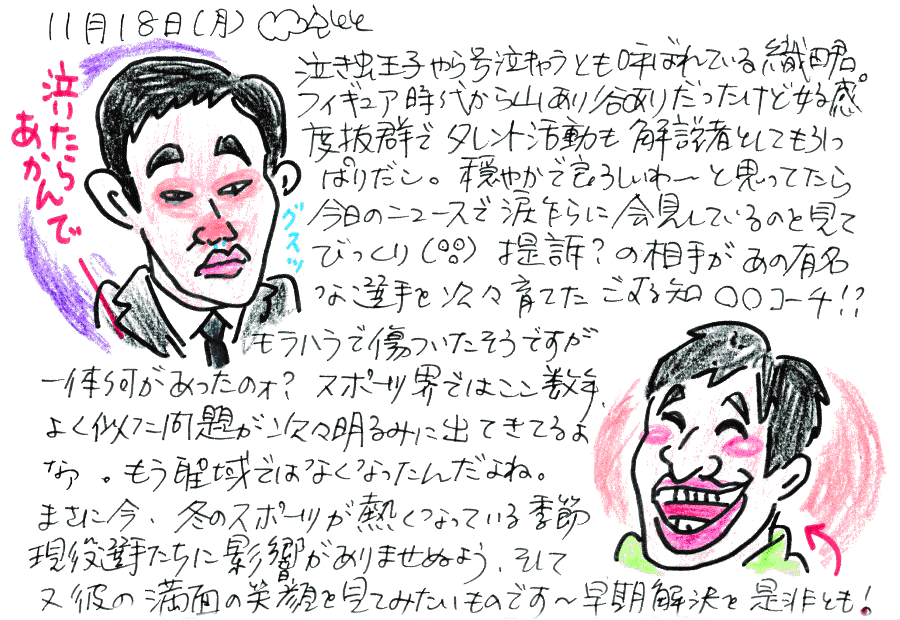 11月18日(月)
泣いたらあかんで
グスッ
泣き虫王子やら号泣キャラとも呼ばれている織田君。
フィギュア時代から山あり谷ありだったけど好感
度抜群でタレント活動も解説者としてもひっ
ぱりだこ。穏やかで良ろしいわ〜と思ってたら
今日のニュースで涙ながらに会見しているのを見て
びっくり(°o°) 提訴?の相手があの有名
な選手を次々育てたご存知 〇〇コーチ!?
モラハラで傷ついたそうですが
一体何があったのォ? スポーツ界ではここ数年、
よく似た問題が次々明るみに出てきてるよ
なァ。もう聖域ではなくなったんだよね。
まさに今、冬のスポーツが熱くなっている季節
現役選手たちに影響がありませぬよう、そして
又彼の満面の笑顔を見てみたいものです〜早期解決を是非とも!